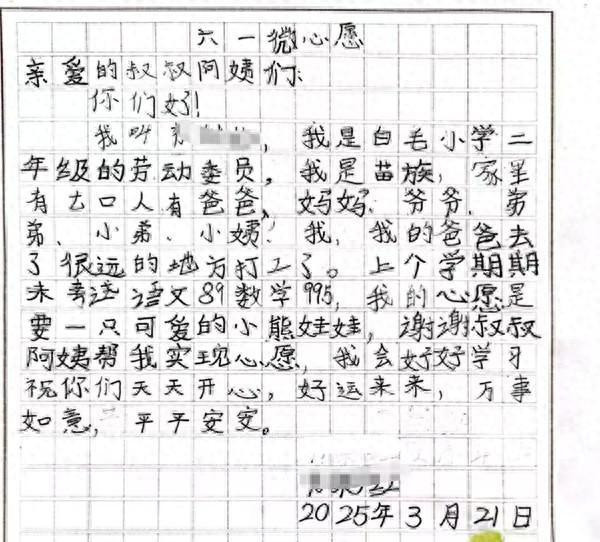 六一微心愿
亲爱的叔叔阿姨们:
你们好!
我叫 , 我是白毛小学二
年级的劳动委员, 我是苗族, 家里
有七口人有爸爸、妈妈、爷爷、弟
弟、小弟、小姨、我, 我的爸爸去
了很远的地方打工了。上个学期期
末考试语文89数学99.5, 我的心愿是
要一只可爱的小熊娃娃, 谢谢叔叔
阿姨帮我实现心愿, 我会好好学习
祝你们天天开心, 好运来来, 万事
如意, 平平安安。
2025年3月21日